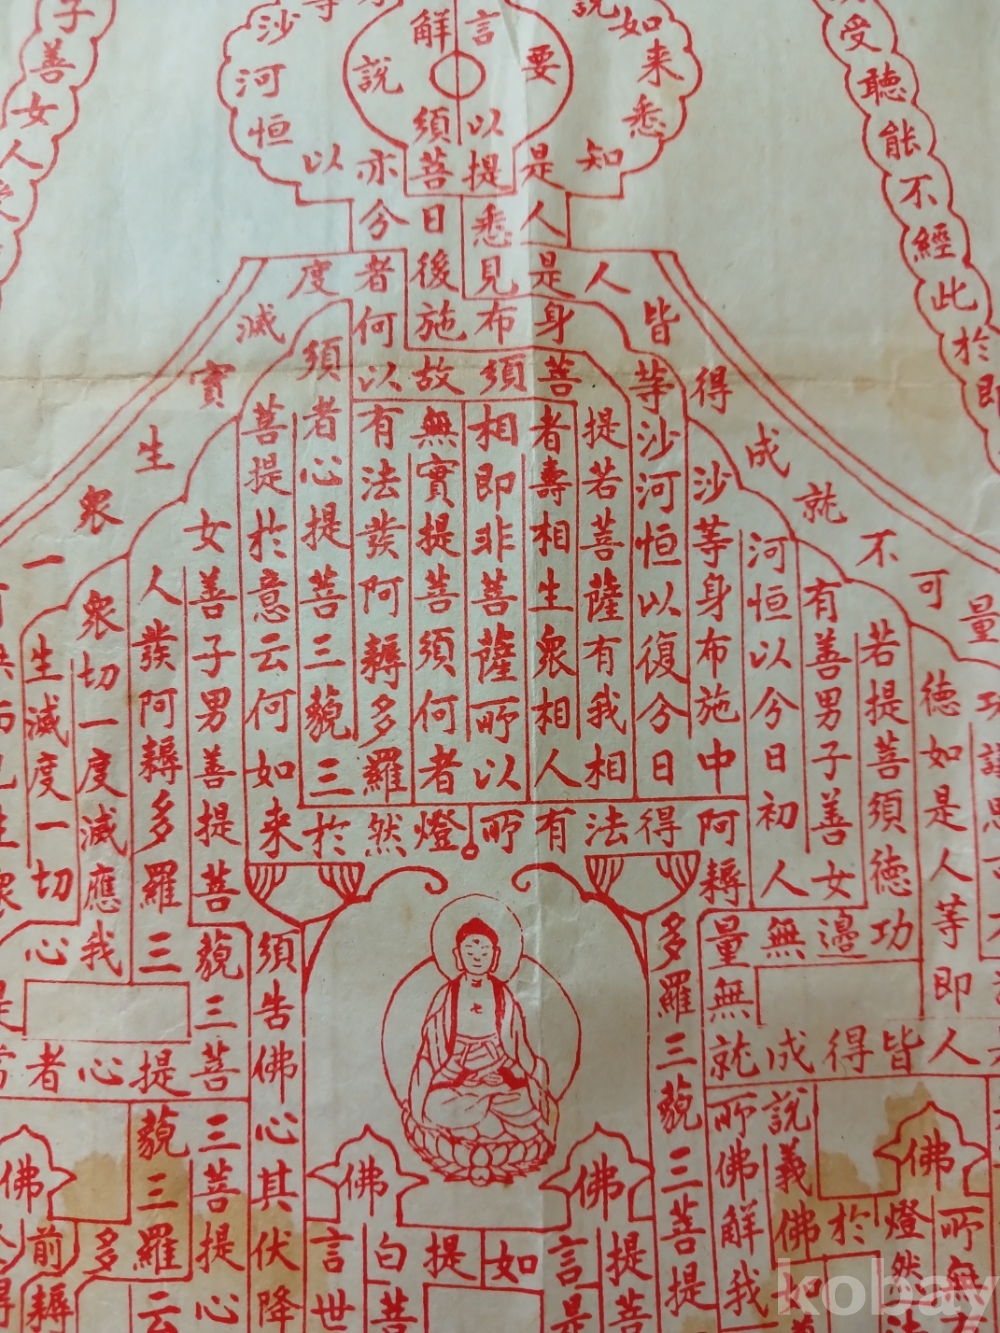 受聽能不經此於即
說如来悉知
言要以提是
解說須菩
等沙河恒以亦
子善女人受
今日悉人
度者後見是人
滅何施布身皆
實須以故須菩等得
生成就不可量
眾
一
功
德如是人等即人
若提菩須德功
有善男子善女
河恒以今日初人
沙等身布施中
沙河恒以復今日
提若菩薩有我相
者壽相生眾相人
相即非菩薩所以
無實提菩須何者
有法發阿耨多羅
者心提菩三藐三
菩提於意云何如来
女善子男善提菩
人發阿耨多羅三
眾切一度滅應我
生滅度一切
心
阿得法有所燈然於
耨多羅三藐三菩提
量無邊功
無就成得皆
藐三菩
提心者常
須告佛心其伏降
三菩提心
藐三羅云
多
前耨
佛
佛
佛
佛
說義佛於燈然
所佛解我
所無
提菩
言是
如
提菩
白
言世
kobay